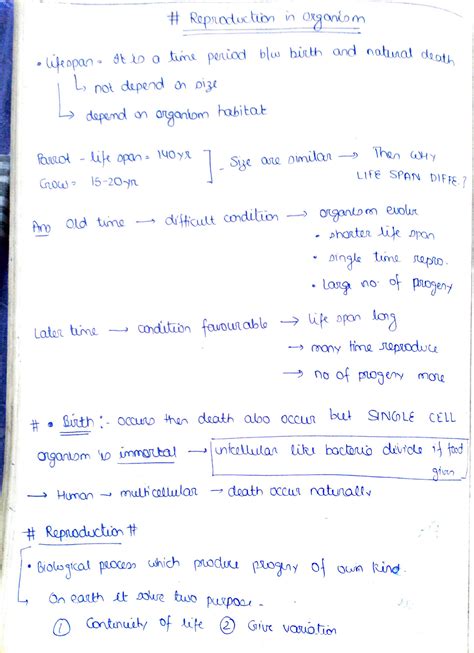 # Reproduction in organism
• lifespan - It is a time period b/w birth and natural death
↳ not depend on size
↳ depend on organism habitat
Parrot - life span = 140 yr ] - Size are similar → Then WHY
Crow = 15-20 yr LIFE SPAN DIFFE.?
Ans Old time → difficult condition → organism evolve
• shorter life span
• single time repro.
• Large no. of progeny
Later time → condition favourable → life span long
→ many time reproduce
→ no of progeny more
# • Birth :- occurs then death also occur but SINGLE CELL
organism is immortal → intcellular like bacteria divide if food
given
→ Human → multicellular → death occur naturally
# Reproduction #
• Biological process which produce progeny of own kind.
↳ On earth it solve two purpose -
① Continuity of life ② Give variation